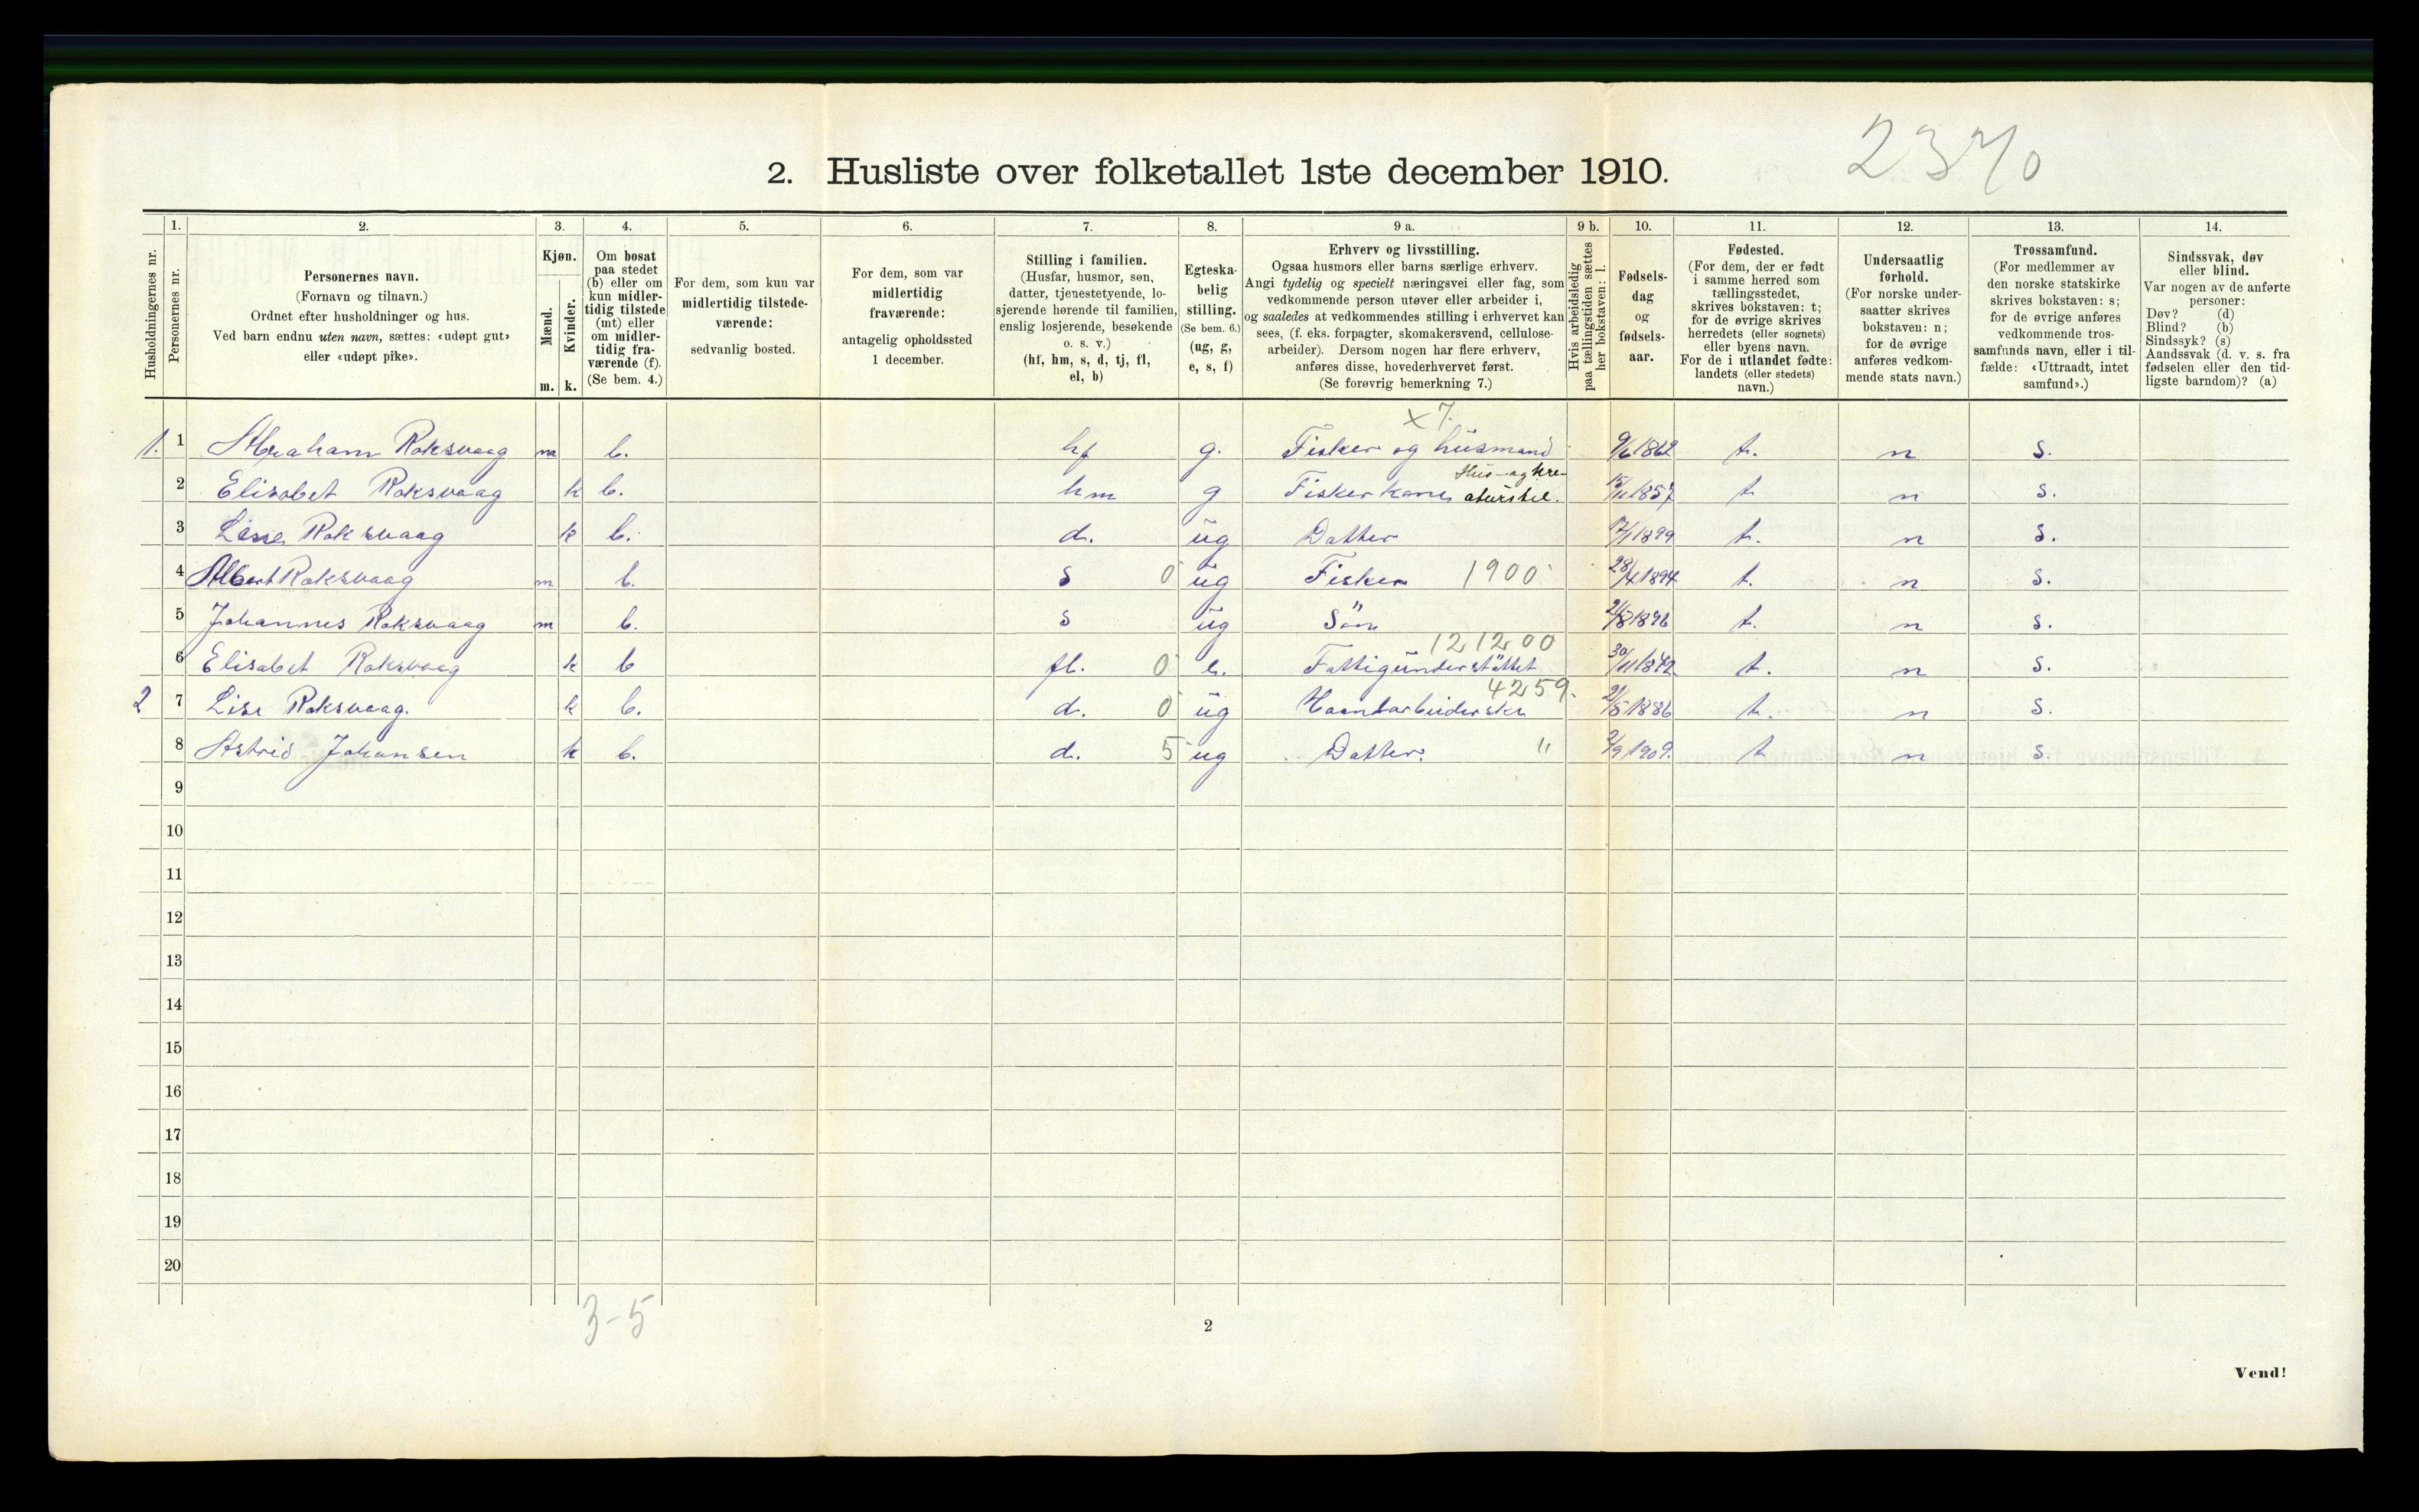 2370
2. Husliste over folketallet 1ste december 1910.
1. 2. 3. 4. 5. 6. 7. 8. 9 a. 9 b. 10. 11. 12. 13. 14.
Husholdningernes nr.
Personernes nr.
Personernes navn.
(Fornavn og tilnavn.)
Ordnet efter husholdninger og hus.
Ved barn endnu uten navn, sættes: «udøpt gut»
eller «udøpt pike».
Kjøn.
Mænd.
Kvinder.
m. k.
Om bosat
paa stedet
(b) eller om
kun midler-
tidig tilstede
(mt) eller
om midler-
tidig fra-
værende (f).
(Se bem. 4.)
For dem, som kun var
midlertidig tilstede-
værende:
sedvanlig bosted.
For dem, som var
midlertidig
fraværende:
antagelig opholdssted
1 december.
Stilling i familien.
(Husfar, husmor, søn,
datter, tjenestetyende, lo-
sjerende hørende til familien,
enslig losjerende, besøkende
o. s. v.)
(hf, hm, s, d, tj, fl,
el, b)
Egteska-
belig
stilling.
(Se bem. 6.)
(ug, g,
e, s, f)
Erhverv og livsstilling.
Ogsaa husmors eller barns særlige erhverv.
Angi tydelig og specielt næringsvei eller fag, som
vedkommende person utøver eller arbeider i,
og saaledes at vedkommendes stilling i erhvervet kan
sees, (f. eks. forpagter, skomakersvend, cellulose-
arbeider). Dersom nogen har flere erhverv,
anføres disse, hovederhvervet først.
(Se forøvrig bemerkning 7.)
Hvis arbeidsledig
paa tællingstiden sættes
her bokstaven: l.
Fødsels-
dag
og
fødsels-
aar.
Fødested.
(For dem, der er født
i samme herred som
tællingsstedet,
skrives bokstaven: t;
for de øvrige skrives
herredets (eller sognets)
eller byens navn.
For de i utlandet fødte:
landets (eller stedets)
navn.)
Undersaatlig
forhold.
(For norske under-
saatter skrives
bokstaven: n;
for de øvrige
anføres vedkom-
mende stats navn.)
Trossamfund.
(For medlemmer av
den norske statskirke
skrives bokstaven: s;
for de øvrige anføres
vedkommende tros-
samfunds navn, eller i til-
fælde: «Uttraadt, intet
samfund».)
Sindssvak, døv
eller blind.
Var nogen av de anførte
personer:
Døv? (d)
Blind? (b)
Sindssyk? (s)
Aandssvak (d. v. s. fra
fødselen eller den tid-
ligste barndom)? (a)
x 7.
1. 1 Abraham Roksvaag m b. hf g. Fisker og husmand 9/6 1862 t. n s.
Hus- og kre-
2 Elisabet Roksvaag k b. hm g Fiskerkone aturstel. 15/11 1857 t n s.
3 Lisse Roksvaag k b. d. ug Datter 17/1 1899 t. n s.
4 Albert Roksvaag m b. s 0 ug Fisker 1900 28/4 1894 t. n s.
5 Johannes Roksvaag m b. s ug Søn 2/8 1896 t. n s.
121200
6 Elisabet Roksvaag k b fl. 0 e. Fattigunderstøttet 30/11 1842 t. n s.
4259.
2 7 Lise Roksvaag. k b. d. 0 ug Haandarbeiderske 21/5 1886 t. n s.
8 Astrid Johansen k b. d. 5 ug Datter. " 2/9 1909. t n s.
9
10
11
12
13
14
15
16
17
18
19
20
3-5
2
Vend!